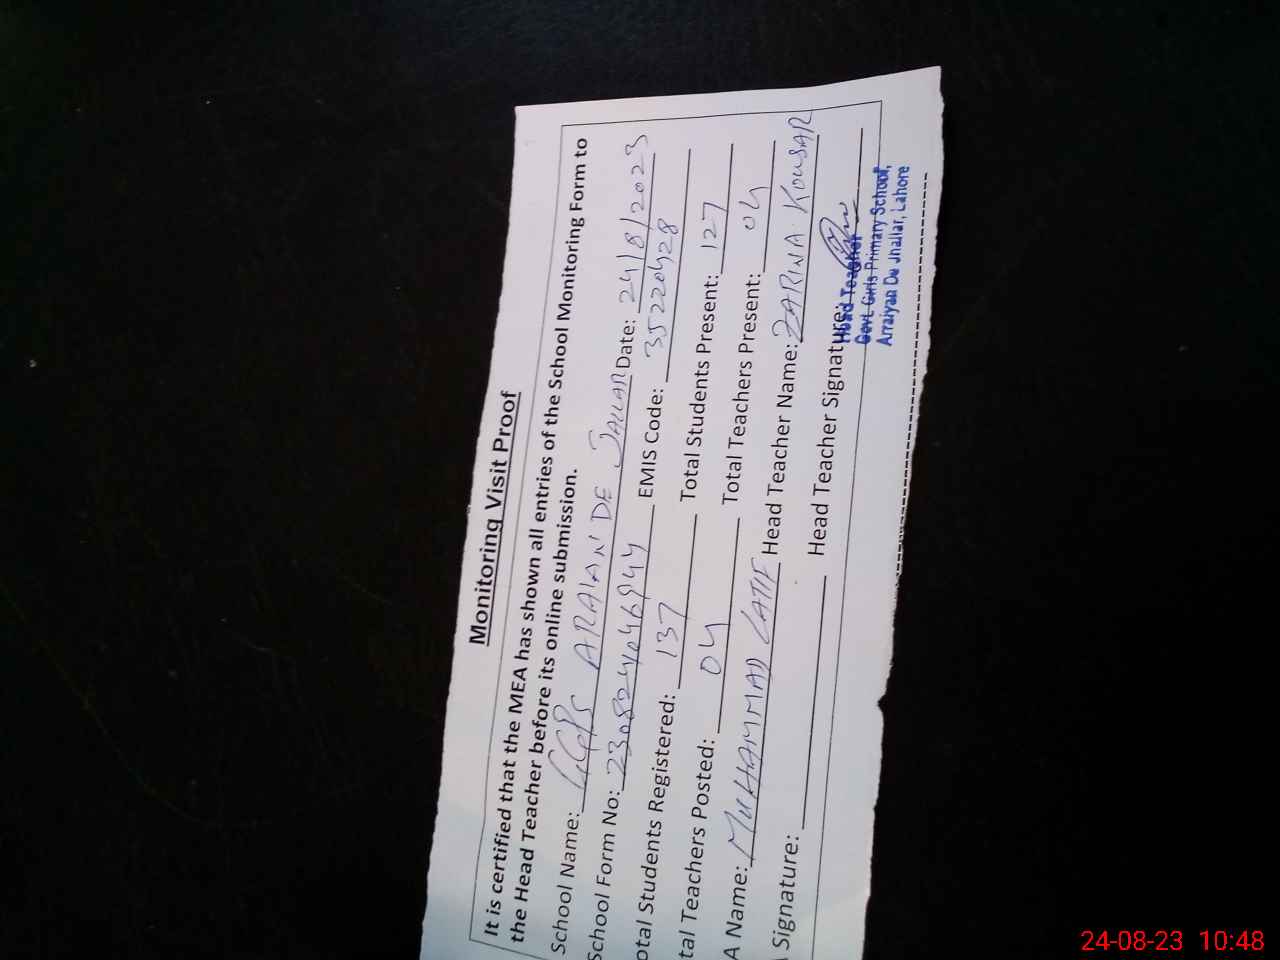 Monitoring Visit Proof
It is certified that the MEA has shown all entries of the School Monitoring Form to
the Head Teacher before its online submission.
School Name: GGPS ARAIAN DE JALLAR Date: 24/8/2023
School Form No: 230824046944 EMIS Code: 35220428
otal Students Registered: 137 Total Students Present: 127
tal Teachers Posted: 04 Total Teachers Present: 04
A Name: MUHAMMAD LATIF Head Teacher Name: ZARINA KOUSAR
Signature: Head Teacher Signature:
Head Teacher
Govt. Girls Primary School,
Arraiyan De Jhallar, Lahore
24-08-23 10:48